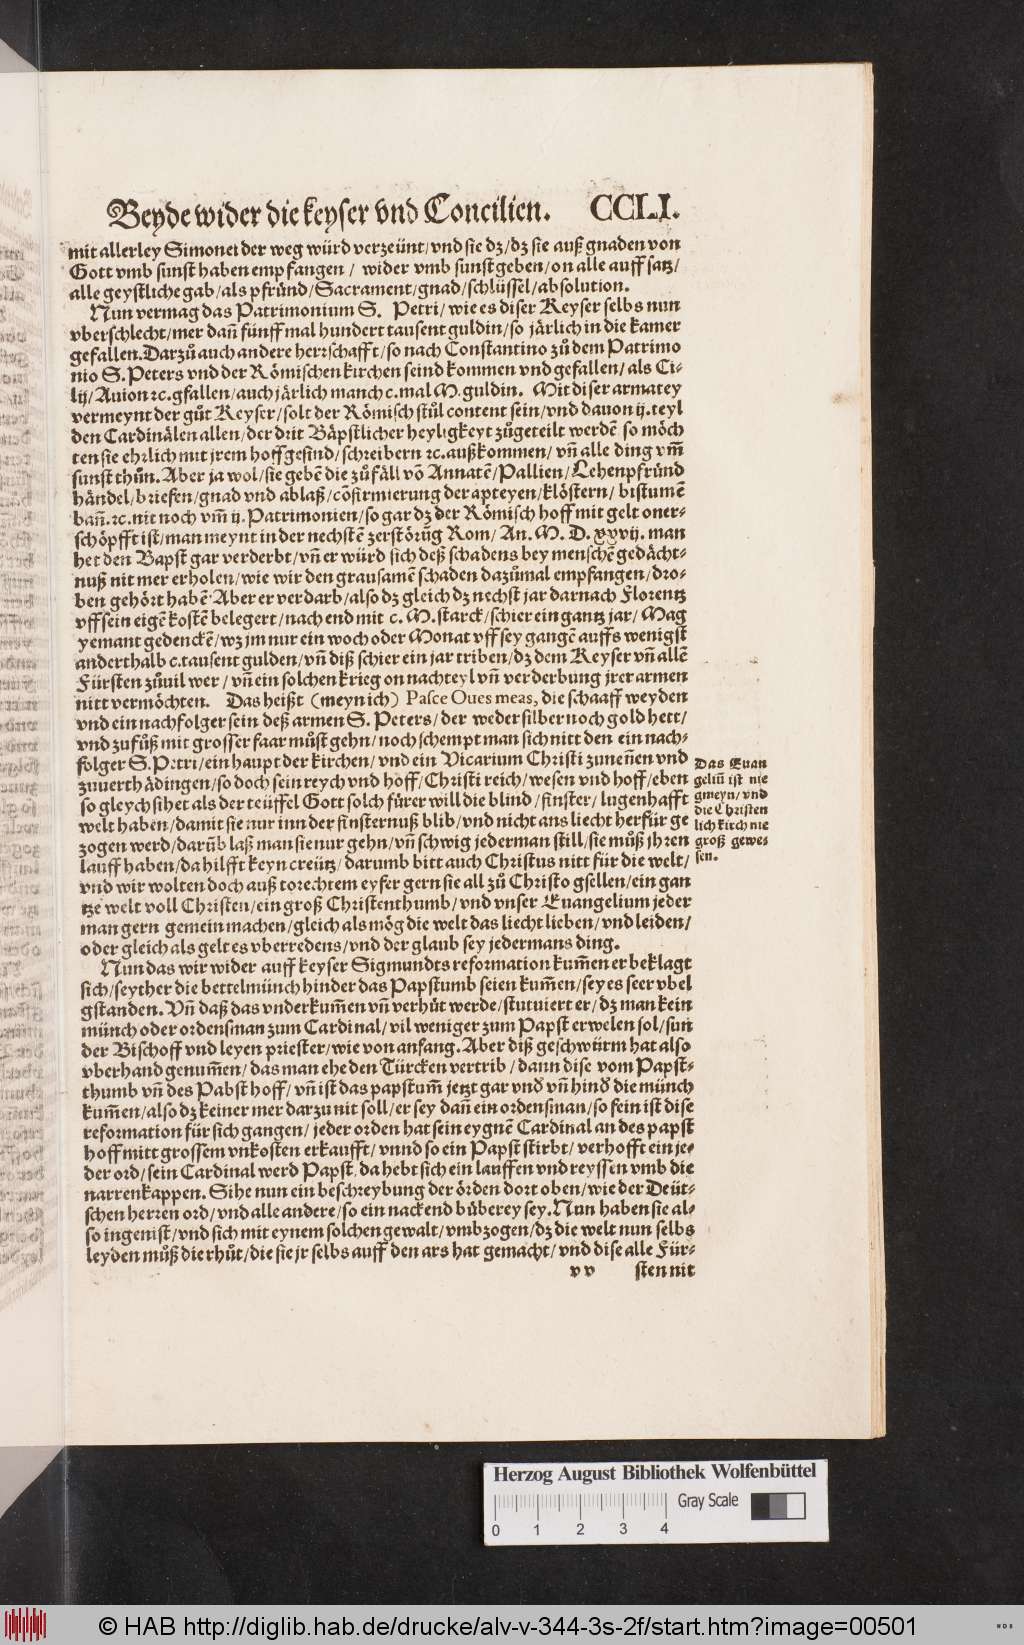 Beyde wider die keyser vnd Concilien. CCLI.
mit allerley Simonei der weg würd verzeünt/vnd sie dz/dz sie auß gnaden von
Gott vmb sunst haben empfangen / wider vmb sunst geben/on alle auff satz/
alle geystliche gab/als pfründ/Sacrament/gnad/schlüssel/absolution.
Nun vermag das Patrimonium S. Petri/wie es diser Keyser selbs nun
vberschlecht/mer dañ fünff mal hundert tausent guldin/so järlich in die kamer
gefallen. Darzů auch andere herrschafft/so nach Constantino zů dem Patrimo
nio S. Peters vnd der Römischen kirchen seind kommen vnd gefallen/als Ci-
lij/Auion ꝛc. gfallen/auch järlich manch c. mal M. guldin. Mit diser armatey
vermeynt der gůt Keyser/solt der Römisch stůl content sein/vnd dauon ij. teyl
den Cardinälen allen/der drit Bäpstlicher heyligkeyt zůgeteilt werdē so möch
ten sie ehrlich mit jrem hoffgesind/schreibern ꝛc. außkommen/vñ alle ding vm̄
sunst thůn. Aber ja wol/sie gebē die zůfäll vō Annatē/Pallien/Lehenpfründ
händel/briefen/gnad vnd ablaß/cōfirmierung der apteyen/klöstern/bistumē
bañ. ꝛc. nit noch vm̄ ij. Patrimonien/so gar dz der Römisch hoff mit gelt oner-
schöpfft ist/man meynt in der nechstē zerstörūg Rom/An. M. D. xxvij. man
het den Bapst gar verderbt/vñ er würd sich deß schadens bey menschē gedächt-
nuß nit mer erholen/wie wir den grausamē schaden dazůmal empfangen/dro-
ben gehört habē. Aber er verdarb/also dz gleich dz nechst jar darnach Florentz
vff sein eigē kostē belegert/nach end mit c. M. starck/schier ein gantz jar/Mag
yemant gedenckē/wz jm nur ein woch oder Monat vff sey gangē auffs wenigst
anderthalb c. tausent gulden/vñ diß schier ein jar triben/dz dem Keyser vñ allē
Fürsten zůuil wer/vñ ein solchen krieg on nachteyl vñ verderbung jrer armen
nitt vermöchten. Das heißt (meyn ich) Pasce Oues meas, die schaaff weyden
vnd ein nachfolger sein deß armen S. Peters/der weder silber noch gold hett/
vnd zufůß mit grosser faar můst gehn/noch schempt man sich nitt den ein nach-
folger S. Petri/ein haupt der kirchen/vnd ein Vicarium Christi zuneñen vnd
zuuerthädingen/so doch sein reych vnd hoff/Christi reich/wesen vnd hoff/eben
so gleych sihet als der teüffel Gott solch fürer will die blind/finster/lugenhafft
welt haben/damit sie nur inn der finsternuß blib/vnd nicht ans liecht herfür ge
zogen werd/darūb laß man sie nur gehn/vñ schwig jederman still/sie můß jhren
lauff haben/da hilfft keyn creütz/darumb bitt auch Christus nitt für die welt/
vnd wir wolten doch auß torechtem eyfer gern sie all zů Christo gsellen/ein gan
tze welt voll Christen/ein groß Christenthumb/vnd vnser Euangelium jeder
man gern gemein machen/gleich als mög die welt das liecht lieben/vnd leiden/
oder gleich als gelt es vberredens/vnd der glaub sey jedermans ding.
Das Euan
geliū ist nie
gmeyn/vnd
die Christen
lich kirch nie
groß gewe-
sen.
Nun das wir wider auff keyser Sigmundts reformation kum̄en er beklagt
sich/seyther die bettelmünch hinder das Papstumb seien kum̄en/sey es seer vbel
gstanden. Vñ daß das vnderkum̄en vñ verhůt werde/stutuiert er/dz man kein
münch oder ordensman zum Cardinal/vil weniger zum Papst erwelen sol/sun
der Bischoff vnd leyen priester/wie von anfang. Aber diß geschwürm hat also
vberhand genum̄en/das man ehe den Türcken vertrib/dann dise vom Papst-
thumb vñ des Pabst hoff/vñ ist das papstum̄ jetzt gar vnd̄ vñ hind̄ die münch
kum̄en/also dz keiner mer darzu nit soll/er sey dañ ein ordensman/so fein ist dise
reformation für sich gangen/jeder orden hat sein eygnē Cardinal an des papst
hoff mitt grossem vnkosten erkaufft/vnnd so ein Papst stirbt/verhofft ein je-
der ord/sein Cardinal werd Papst, da hebt sich ein lauffen vnd reyssen vmb die
narrenkappen. Sihe nun ein beschreybung der örden dort oben/wie der Deüt-
schen herren ord/vnd alle andere/so ein nackend bůberey sey. Nun haben sie al-
so ingenist/vnd sich mit eynem solchen gewalt/vmbzogen/dz die welt nun selbs
leyden můß die rhůt/die sie jr selbs auff den ars hat gemacht/vnd dise alle Für-
vv sten nit
Herzog August Bibliothek Wolfenbüttel
Gray Scale
0 1 2 3 4
© HAB http://diglib.hab.de/drucke/alv-v-344-3s-2f/start.htm?image=00501